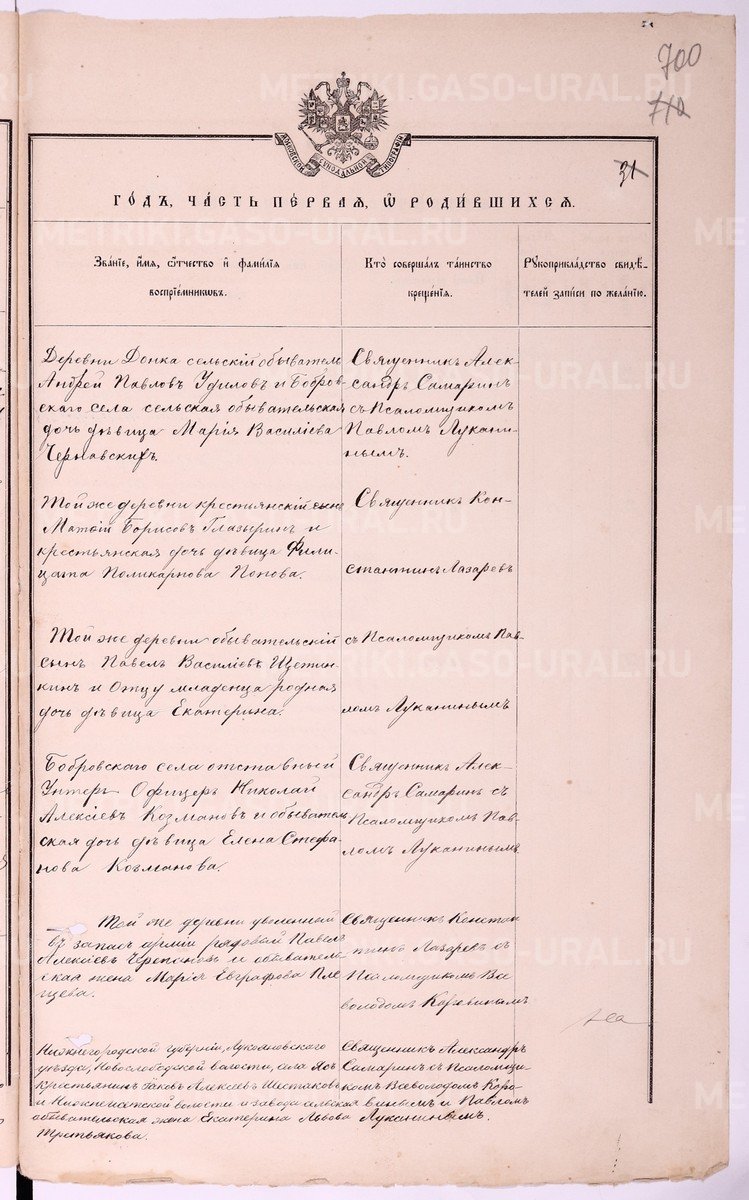 700
710
31
МОСКОВСКОЙ СѴНОДАЛЬНОЙ ТИПОГРАФІИ
ГОДЪ, ЧАСТЬ ПЕРВАЯ, Ѡ РОДИВШИХСЯ.
Званіе, имя, отчество и фамилія
воспріемниковъ.
Кто совершалъ таинство
крещенія.
Рукоприкладство свидѣ-
телей записи по желанію.
Деревни Донка сельскій обыватель
Андрей Павловъ Удиловъ и Бобров-
скаго села сельская обывательская
дочь дѣвица Марія Василіева
Чернавскихъ.
Священникъ Алек-
сандръ Самаринъ
съ Псаломщикомъ
Павломъ Лукани-
нымъ.
Той же деревни крестьянскій сынъ
Матѳій Борисовъ Глазыринъ и
крестьянская дочь дѣвица Фили-
цата Поликарпова Попова.
Священникъ Кон-
стантинъ Лазаревъ
Той же деревни обывательскій
сынъ Павелъ Василіевъ Щетин-
кинъ и Отцу младенца родная
дочь дѣвица Екатерина.
съ Псаломщикомъ Пав-
ломъ Луканинымъ
Бобровскаго села отставный
Унтеръ Офицеръ Николай
Алексіевъ Козмановъ и обыватель
ская дочь дѣвица Елена Стефа-
нова Козманова.
Священникъ Алек-
сандръ Самаринъ съ
Псаломщикомъ Пав-
ломъ Луканинымъ
Той же деревни уволенный
въ запасъ арміи рядовой Павелъ
Алексіевъ Черепановъ и обыватель
ская жена Марія Евграфова Пле
щева.
Священникъ Констан
тинъ Лазаревъ съ
Псаломщикомъ Все
володомъ Коровинымъ
Нижнегородской губерніи, Лукояновскаго
уѣзда, Новослободской волости, села
крестьянинъ Іаковъ Алексіевъ Шестаковъ
и Нижнеисетской волости и завода сельская
обывательская жена Екатерина Львова
Третьякова.
Священникъ Александръ
Самаринъ съ Псаломщи
комъ Всеволодомъ Коро
винымъ и Павломъ
Луканинымъ.
METRIKI.GASO-URAL.RU